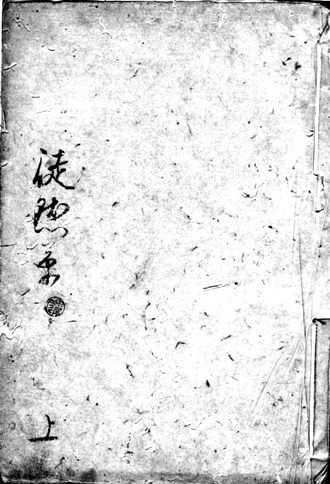 徒然草
上